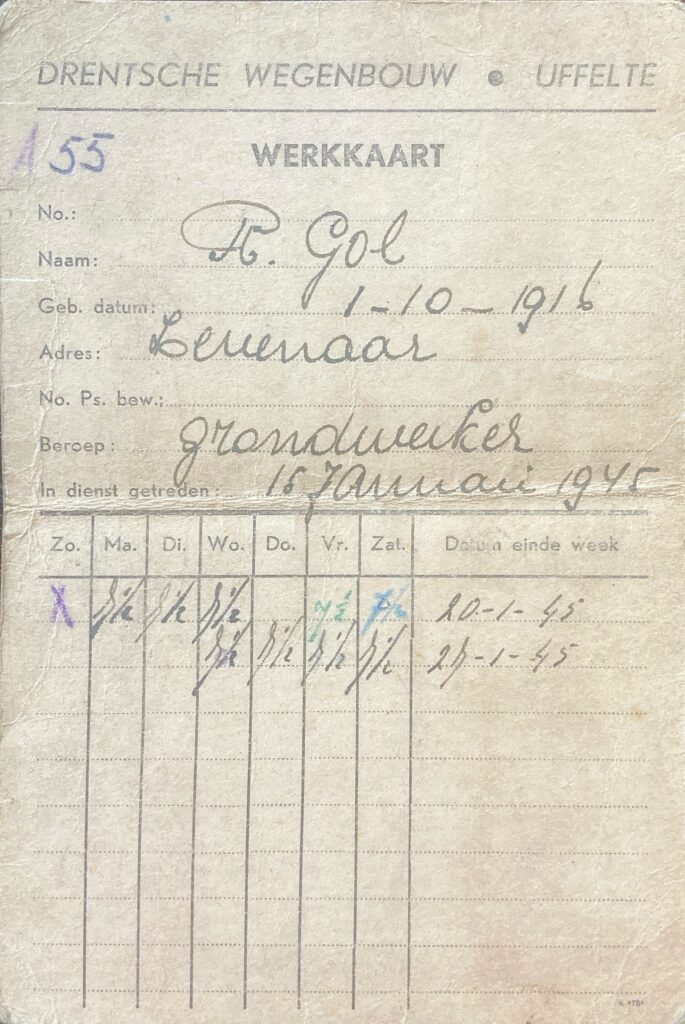 DRENTSCHE WEGENBOUW • UFFELTE
A 55 WERKKAART
No.:
Naam: R. Gol
Geb. datum: 1-10-1916
Adres: Zevenaar
No. Ps. bew.:
Beroep: grondwerker
In dienst getreden: 15 Januari 1945
Zo. Ma. Di. Wo. Do. Vr. Zat. Datum einde week
X 7½ 7½ 7½ 7½ 7½ 20-1-45
7½ 7½ 7½ 7½ 27-1-45